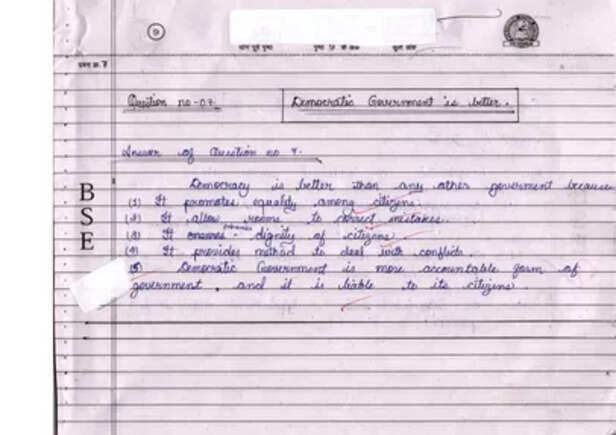 9
प्रश्न क्र. 7
Question no-07.
Democratic Government is better.
Answer of Question no 7.
Democracy is better than any other government because
(1) It promotes equality among citizens.
(2) It allow rooms to correct mistakes.
(3) It enhances dignity of citizens.
(4) It provides method to deal with conflicts.
(5) Democratic Government is more accountable form of
government, and it is liable to its citizens.
B
S
E